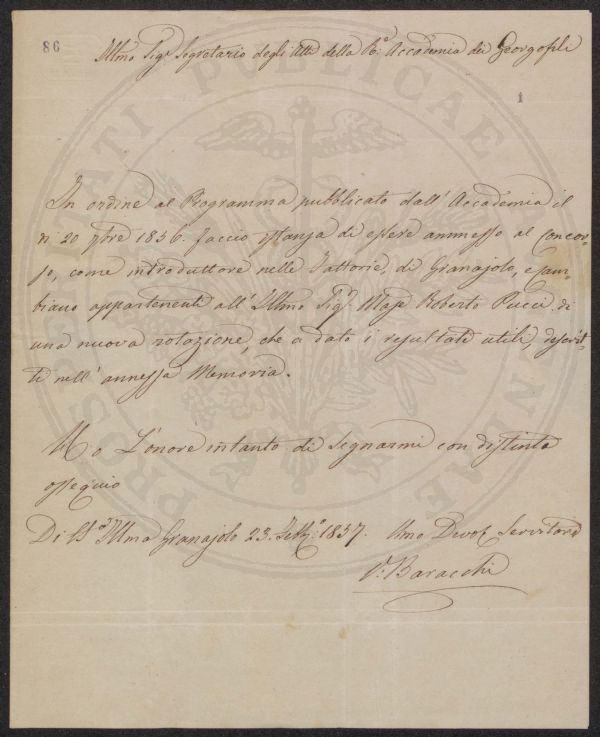 86
Illmo Sigr Segretario degli Atti della Ra Accademia dei Georgofili
1
In ordine al Programma pubblicato dall'Accademia il
n. 20 9bre 1856. faccio istanza di essere ammesso al Concor-
so, come introduttore nelle Fattorie, di Granajolo, e Cam-
biano appartenenti all'Illmo Sigr Marse Roberto Pucci di
una nuova rotazione, che a dato i resultati utili, descrit-
ti nell'annessa Memoria.
Ho L'onore intanto di segnarmi con distinto
ossequio
Di VS Illma Granajolo 23. Settbre 1857. Umo Devot Servitore
V. Baracchi
PROSPERITATI PUBLICAE AUGENDAE